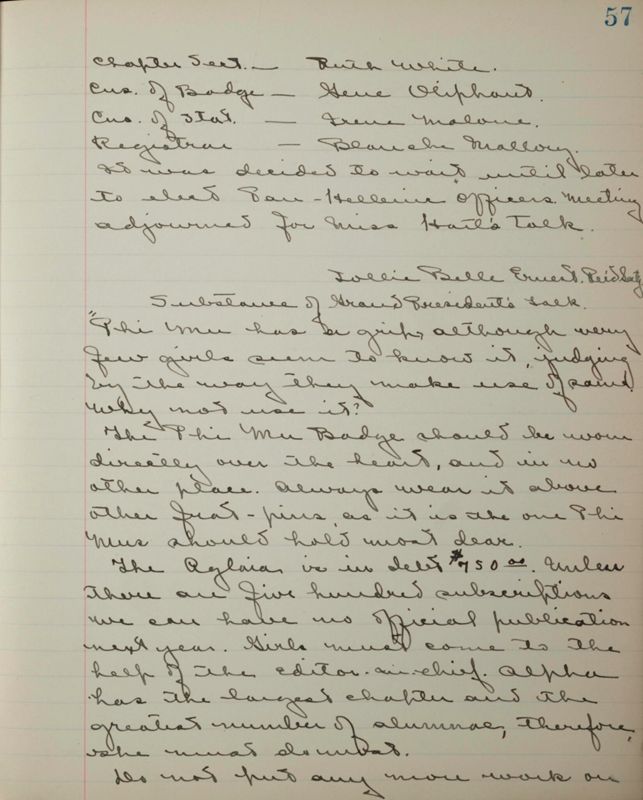 57
Chapter Sect. — Ruth White.
Cus. of Badge — Gene Oliphant.
Cus. of Stat. — Irene Malone.
Registrar — Blanche Mallory.
It was decided to wait until later
to elect Pan-Hellenic Officers. Meeting
adjourned for Miss Hart's Talk.
Lollie Belle Ernest.
Substance of Grand President's Talk.
"Phi Mu has a grip, although very
few girls seem to know it, judging
by the way they make use of same.
Why not use it?
The Phi Mu Badge should be worn
directly over the heart, and in no
other place. Always wear it above
other frat-pins, as it is the one Phi
Mus should hold most dear.
The Aglaia is in debt $750 00. Unless
there are five hundred subscriptions
we can have no official publication
next year. Girls must come to the
help of the editor-in-chief. Alpha
has the largest chapter and the
greatest number of alumnae, therefore,
she must do most.
Do not put any more work on